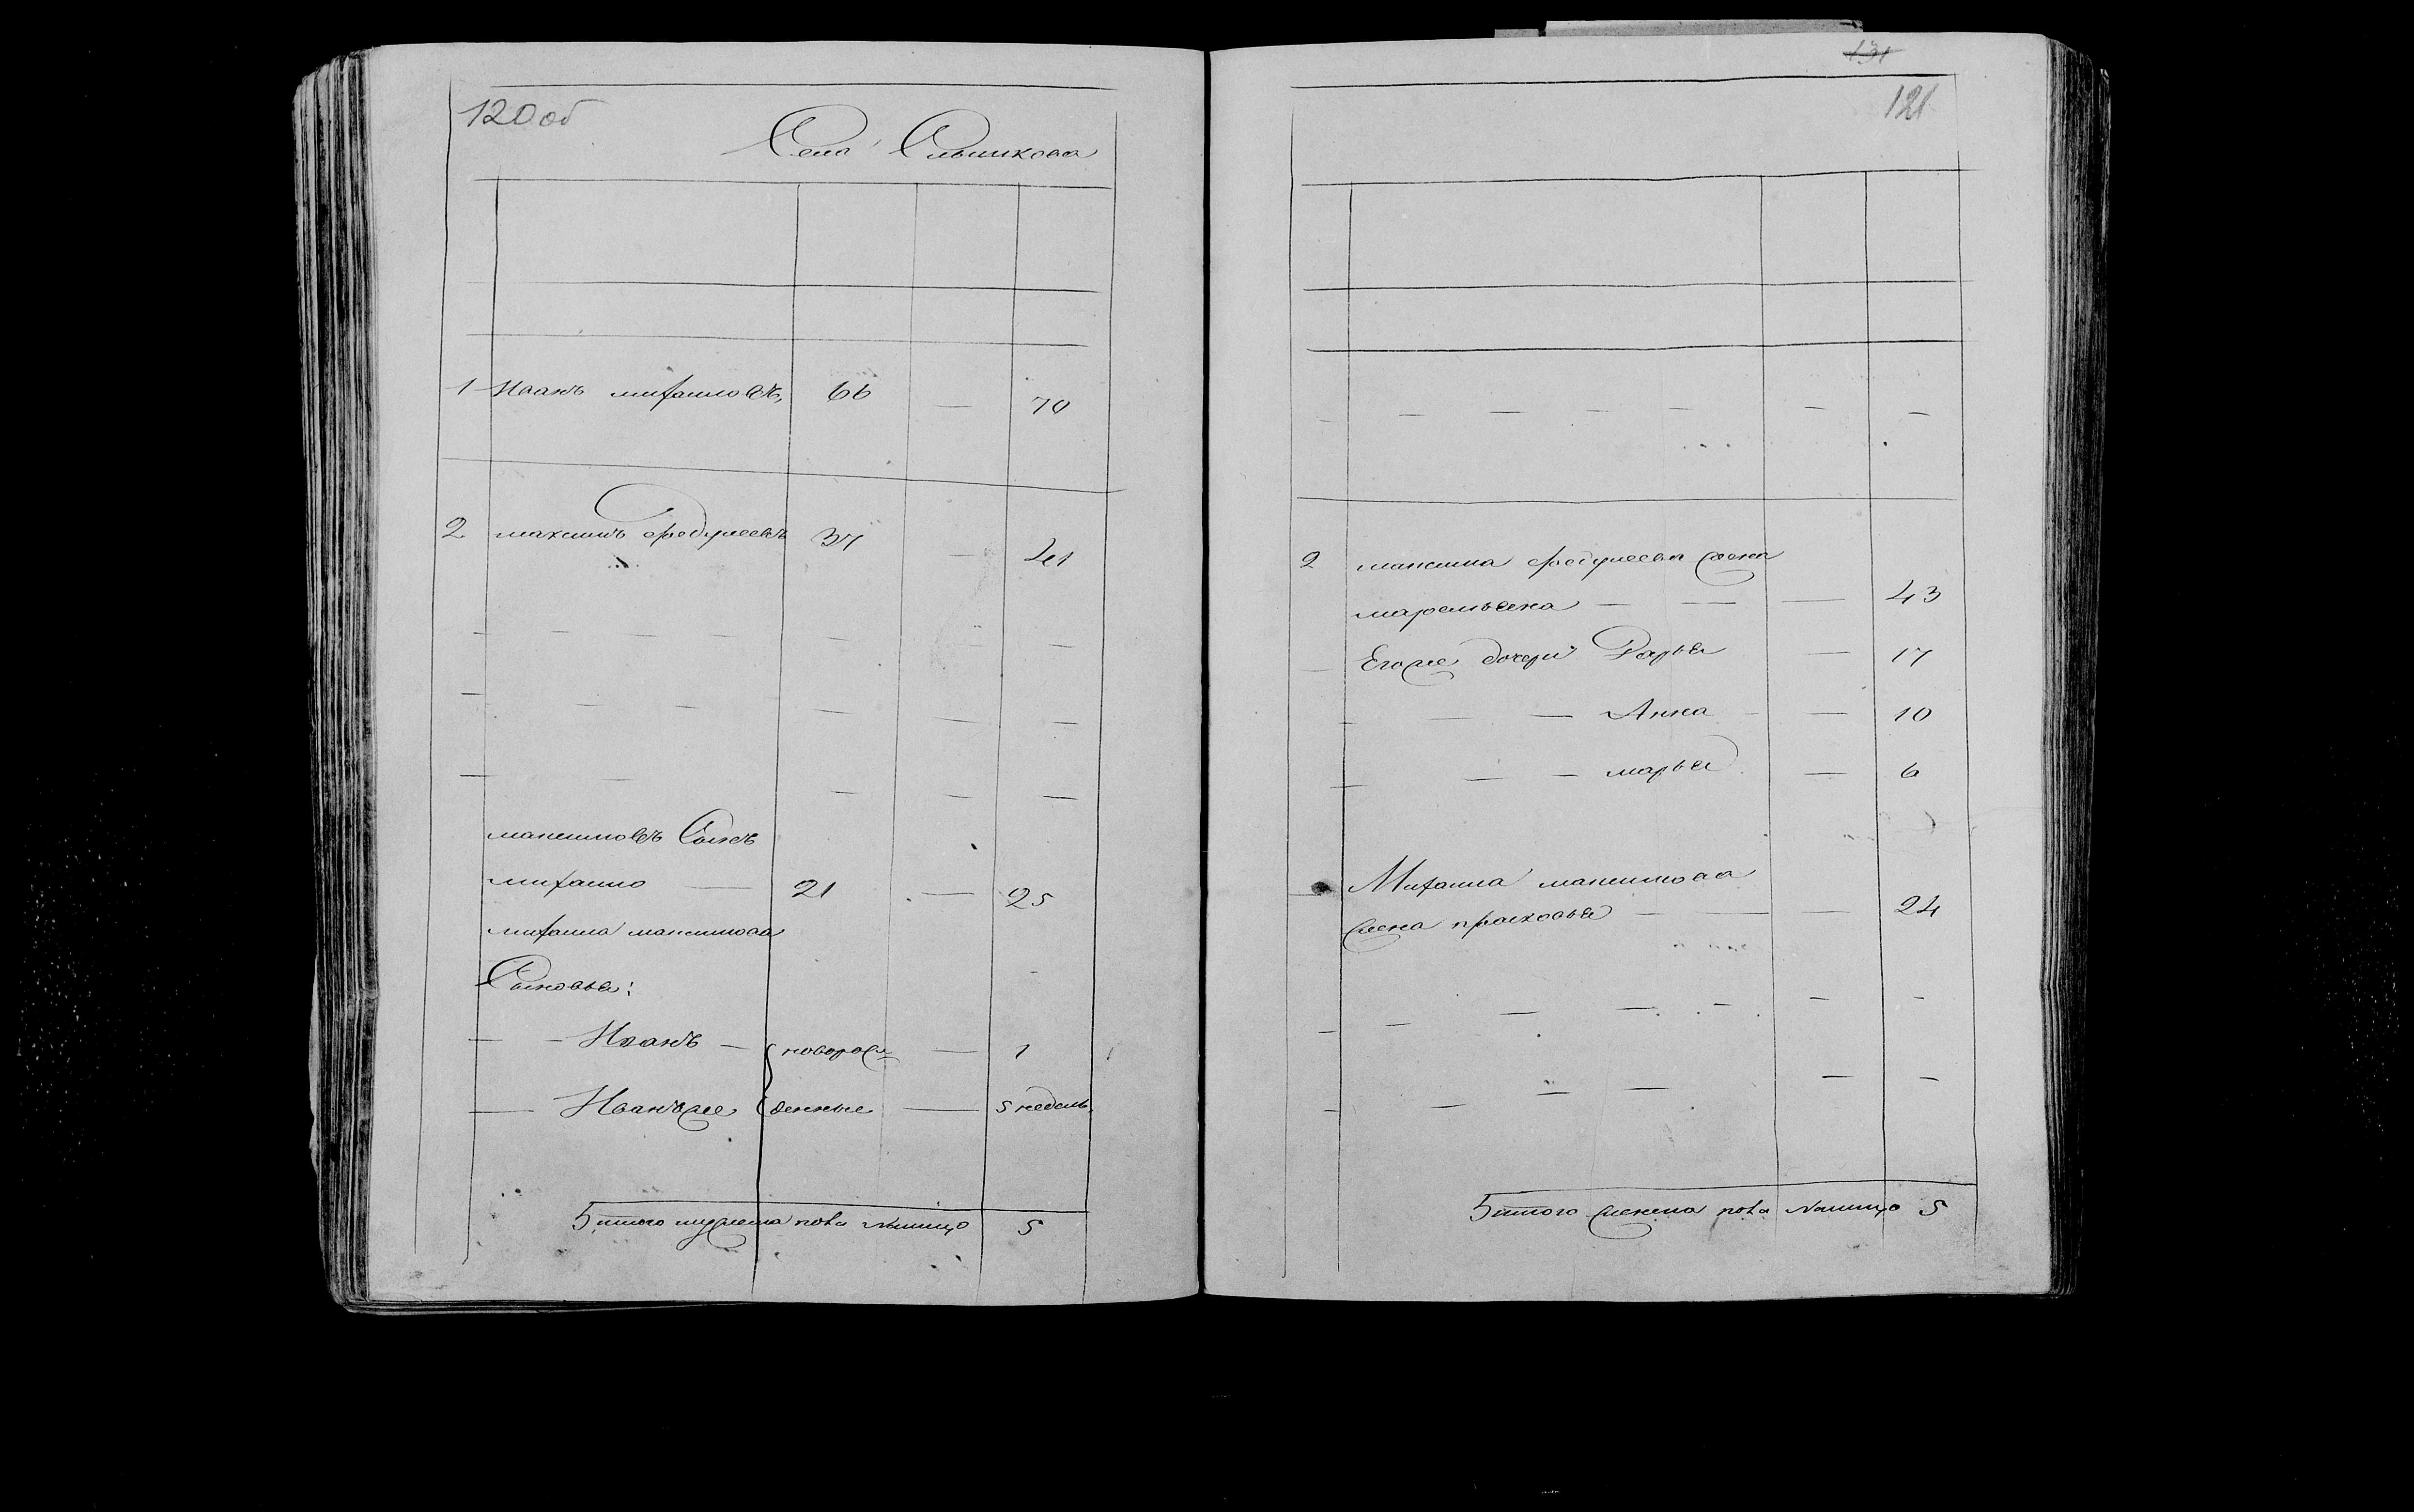 120 об
Села Сльшкова
1 Иванъ михаиловъ, 66 — 70
2 максимъ федулеевъ 37 — 41
максимовъ Сынъ
михаило — 21 — 25
михаила максимова
Сыновья:
— — Иванъ — новорож — 1
— Иванъже денные — 5 недель
5 итого мужеска пола налицо 5
131
121
2 максима федулеева жена
маремьяна — — — 43
— Егоже дочери Дарья — 17
— — — Анна — 10
— — — марья — 6
Михаила максимова
жена прасковья — — — 24
5 итого женска пола налицо 5